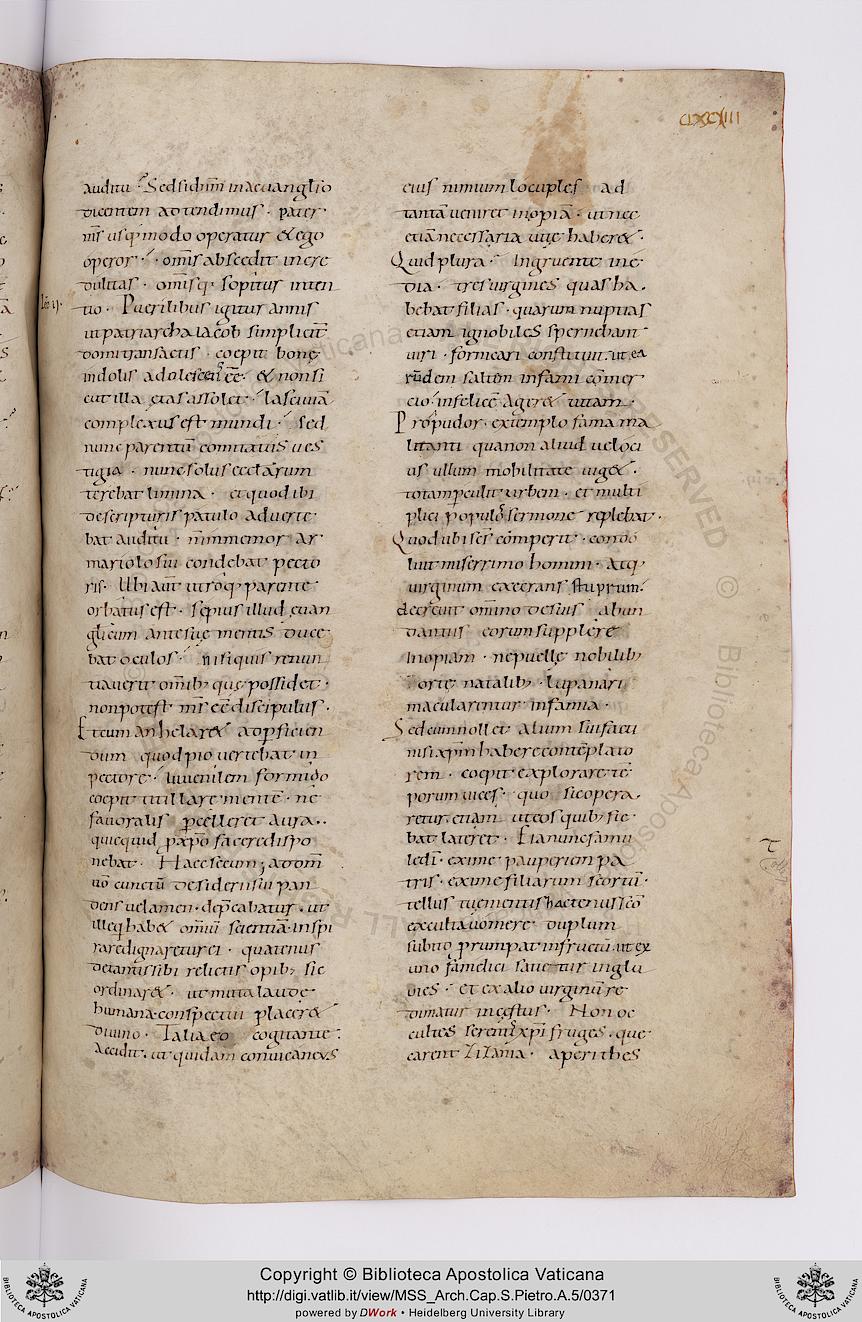 CLXCXIII
auditu · Sed si dn̄m in aeuanglio
dicentem adtendimus · pater
m̄s usq; modo operatur & ego
operor · omīs abscedit incre
dulitas · omīsq; sopitus inten
tio · Puerilibus igitur annis
ut patriarcha iacob simplicit̄
domi transactis · coepit bonę
indolis adolescens ee̅ · & non si
cut illa ętas assolet · lasciuiā
complexus est mundi · sed
nunc parentū comitatus ues
tigia · nunc solus ecclarum
terebat limina · et quod ibi
de scripturis patulo aduerte
bat auditu · n̄ inmemor ar
mariolo sui condebat pecto
ris · Ubi aut̄ utroq; parente
orbatus est · sępius illud euan
glicum ante suę mentis duce
bat oculos · nisi quis renun
tiauerit omīb; quę possidet ·
non potest m̄s ee̅ discipulus ·
Et cum anhelar& ad pficien
dum quod pio uertebat in
pectore · iuuenilem formido
coepit titillare mentē · ne
fauoralis pcelleret aura ·
quicquid p xp̄o facere dispo
nebat · Haec secum ; ad om̄i
no cunctū desiderii sui pan
dens uelamen · dep̄cabatur · ut
ille q̇ habe& omīū scientiā · inspi
rare dignaretur ei · quatenus
de tantis sibi relictis opib; sic
ordinar& · ut inita laude
humana conspectui placer&
diuino · Talia eo cogitante ·
Accidit · ut quidam conuicaneus
eius nimium locuples ad
tantā ueniret inopiā · ut nec
etiā necessaria uitę haber& ·
Quid plura · Ingruente ine
dia · tres uirgines quas ha
bebat filias · quarum nuptias
etiam ignobiles spernebant
uiri · fornicari constituit · ut ea
rūdem saltem infami cōmer
cio infelicē ager& uitam ·
Pro pudor · extemplo fama ma
litanti qua non aliud ueloci
us ullum mobilitate uig& ·
totam pculit urbem · et multi
plici populos sermone replebat ·
Quod ubi sc̄s comperit · condo
luit miserrimo homini · Atq;
uirginum execrans stuprum ·
decreuit omīno de suis abun
dantiis eorum supplere
inopiam · ne puellę nobilib;
ortę natalib; lupanari
macularentur infamia ·
Sed cum nollet alium sui facti
nisi xp̄m habere contēplato
rem · coepit explorare tē
porum uices · quo sic opera
retur etiam ut eos quib; sic
bat lateret · Eia nunc famu
le dī · exime pauperiem pa
tris · exime filiarum scortū ·
tellus tuę mentis hactenus sc̄o
exculta uomere duplum
subito prumpat in fructū · ut ex
uno famelici satietur inglu
uies · et ex alio uirginū re
dimatur incestus · Non oc
cultes serenti xp̄i fruges · que
carent zizania · aperi thes
Copyright © Biblioteca Apostolica Vaticana
http://digi.vatlib.it/view/MSS_Arch.Cap.S.Pietro.A.5/0371
powered by DWork • Heidelberg University Library